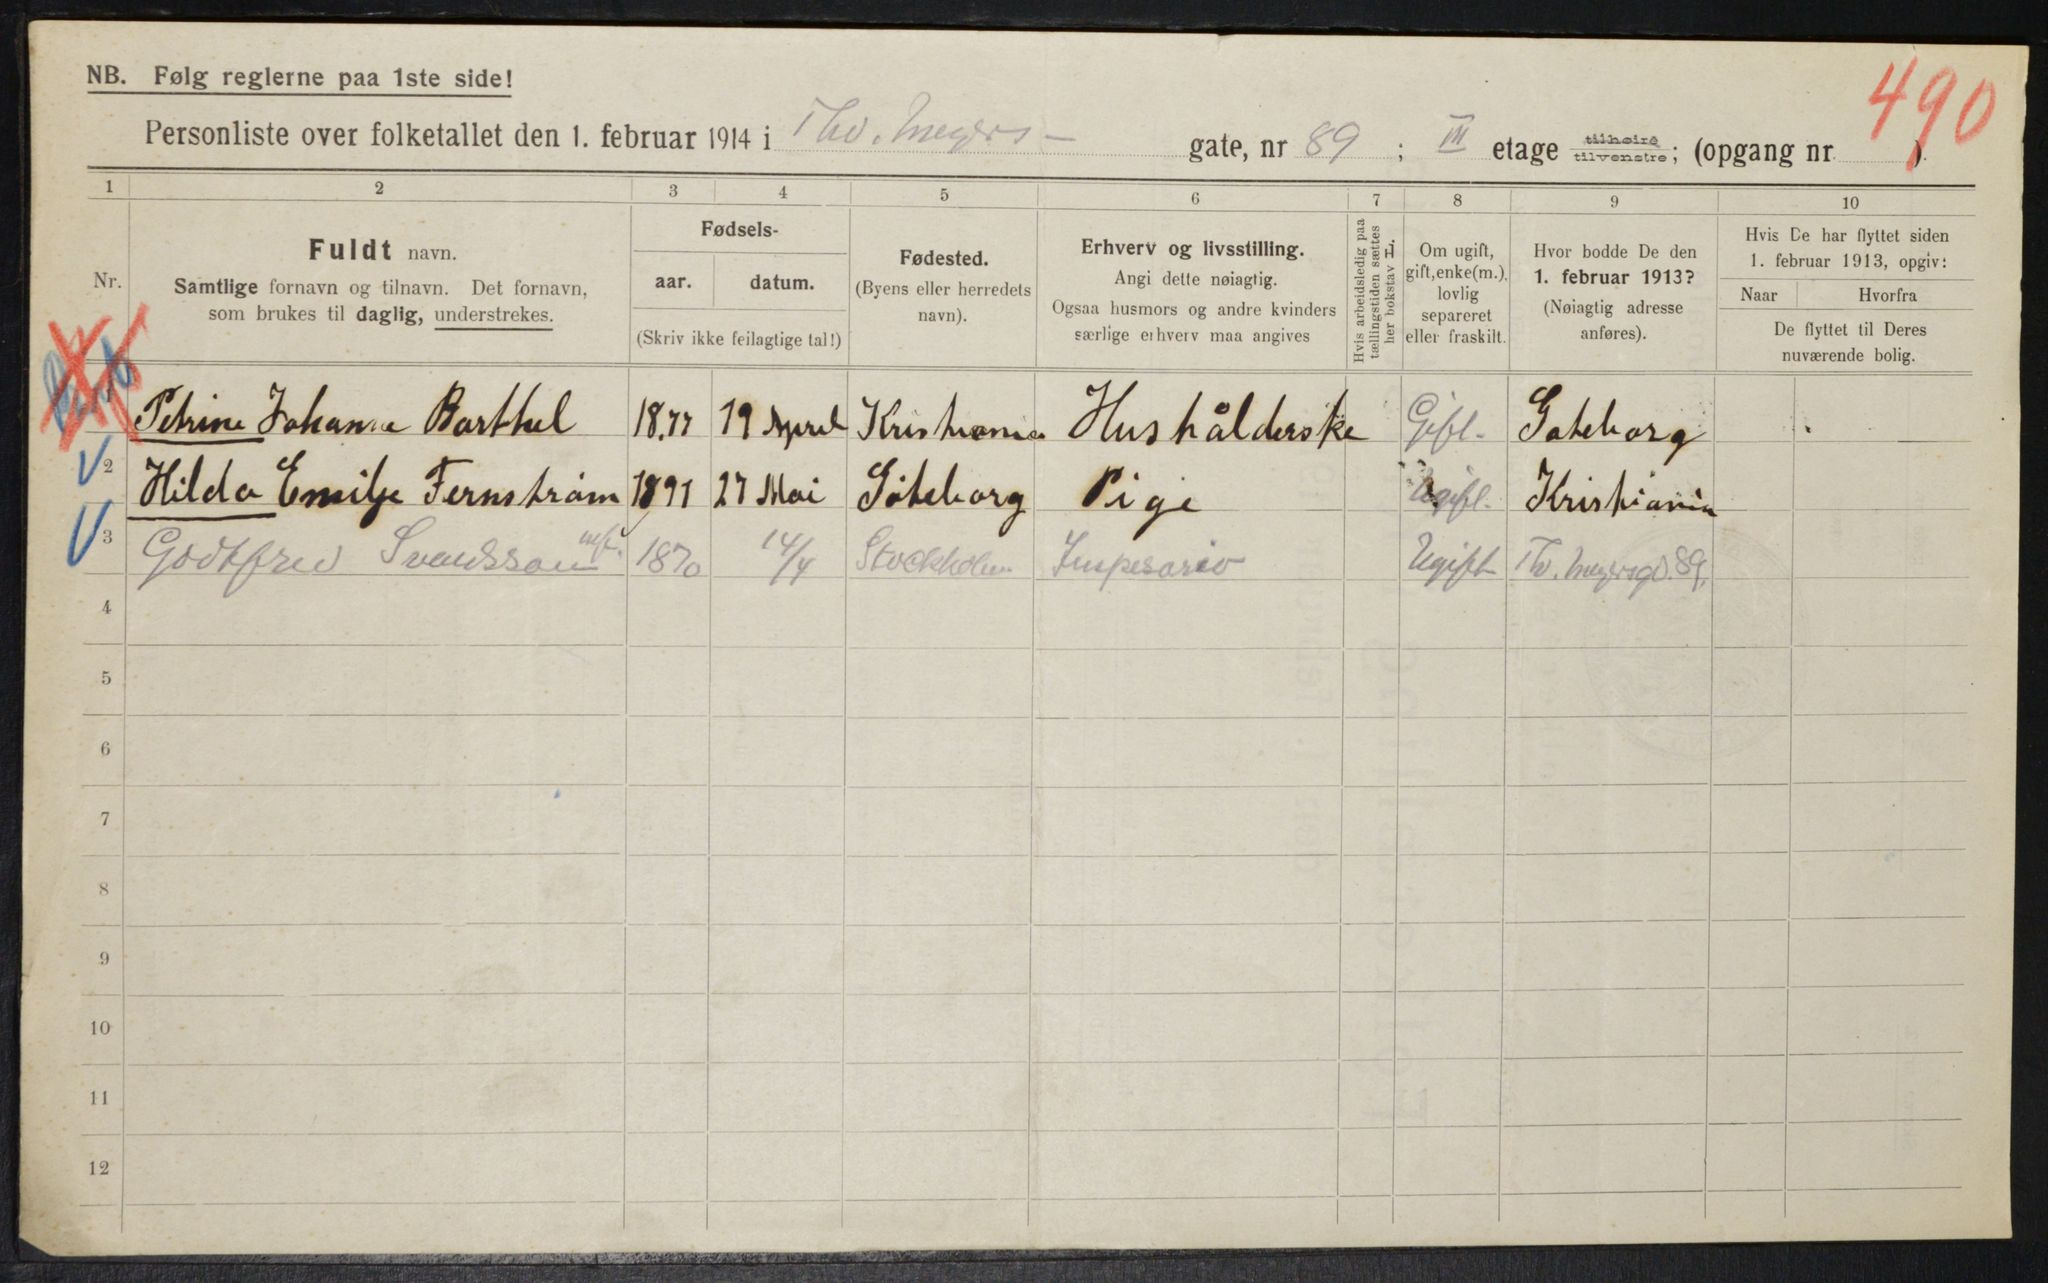 NB. Følg reglerne paa 1ste side!
490
Personliste over folketallet den 1. februar 1914 i Thv. Meyers- gate, nr 89 ; III etage tilhøire tilvenstre; (opgang nr ).
1 2 3 4 5 6 7 8 9 10
Nr.
Fuldt navn.
Samtlige fornavn og tilnavn. Det fornavn,
som brukes til daglig, understrekes.
Fødsels-
aar. datum.
(Skriv ikke feilagtige tal!)
Fødested.
(Byens eller herredets
navn).
Erhverv og livsstilling.
Angi dette nøiagtig.
Ogsaa husmors og andre kvinders
særlige erhverv maa angives
Hvis arbeidsledig paa
tællingstiden sættes
her bokstav L.
Om ugift,
gift, enke(m.),
lovlig
separeret
eller fraskilt.
Hvor bodde De den
1. februar 1913?
(Nøiagtig adresse
anføres).
Hvis De har flyttet siden
1. februar 1913, opgiv:
Naar Hvorfra
De flyttet til Deres
nuværende bolig.
Petrine Johanne Barthel 18.77 19 April Kristiania Hushålderske Gift- Goteborg
2 Hilda Emilje Fernstrøm 1891 27 Mai Göteborg Pige Ugift. Kristiania
3 Godtfred Svendsson 1870 14/4 Stockholm Impesario Ugift Thv. Meyersgd. 89.
4
5
6
7
8
9
10
11
12